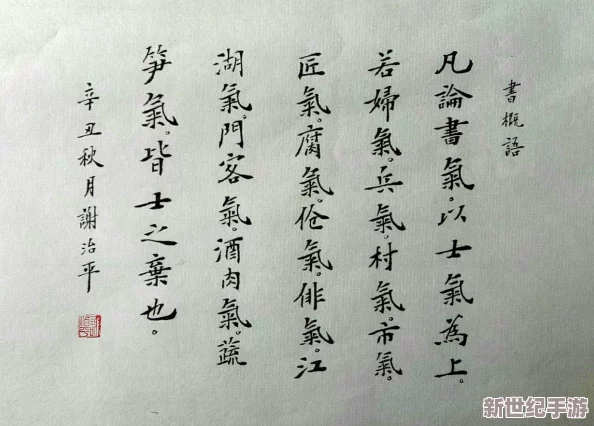 書概語
凡論書氣。以士氣為上。
若婦氣。兵氣。村氣。市氣。
匠氣。腐氣。伧氣。俳氣。江
湖氣。門客氣。酒肉氣。蔬
笋氣。皆士之棄也。
辛丑秋月謝治平
新世纪手游